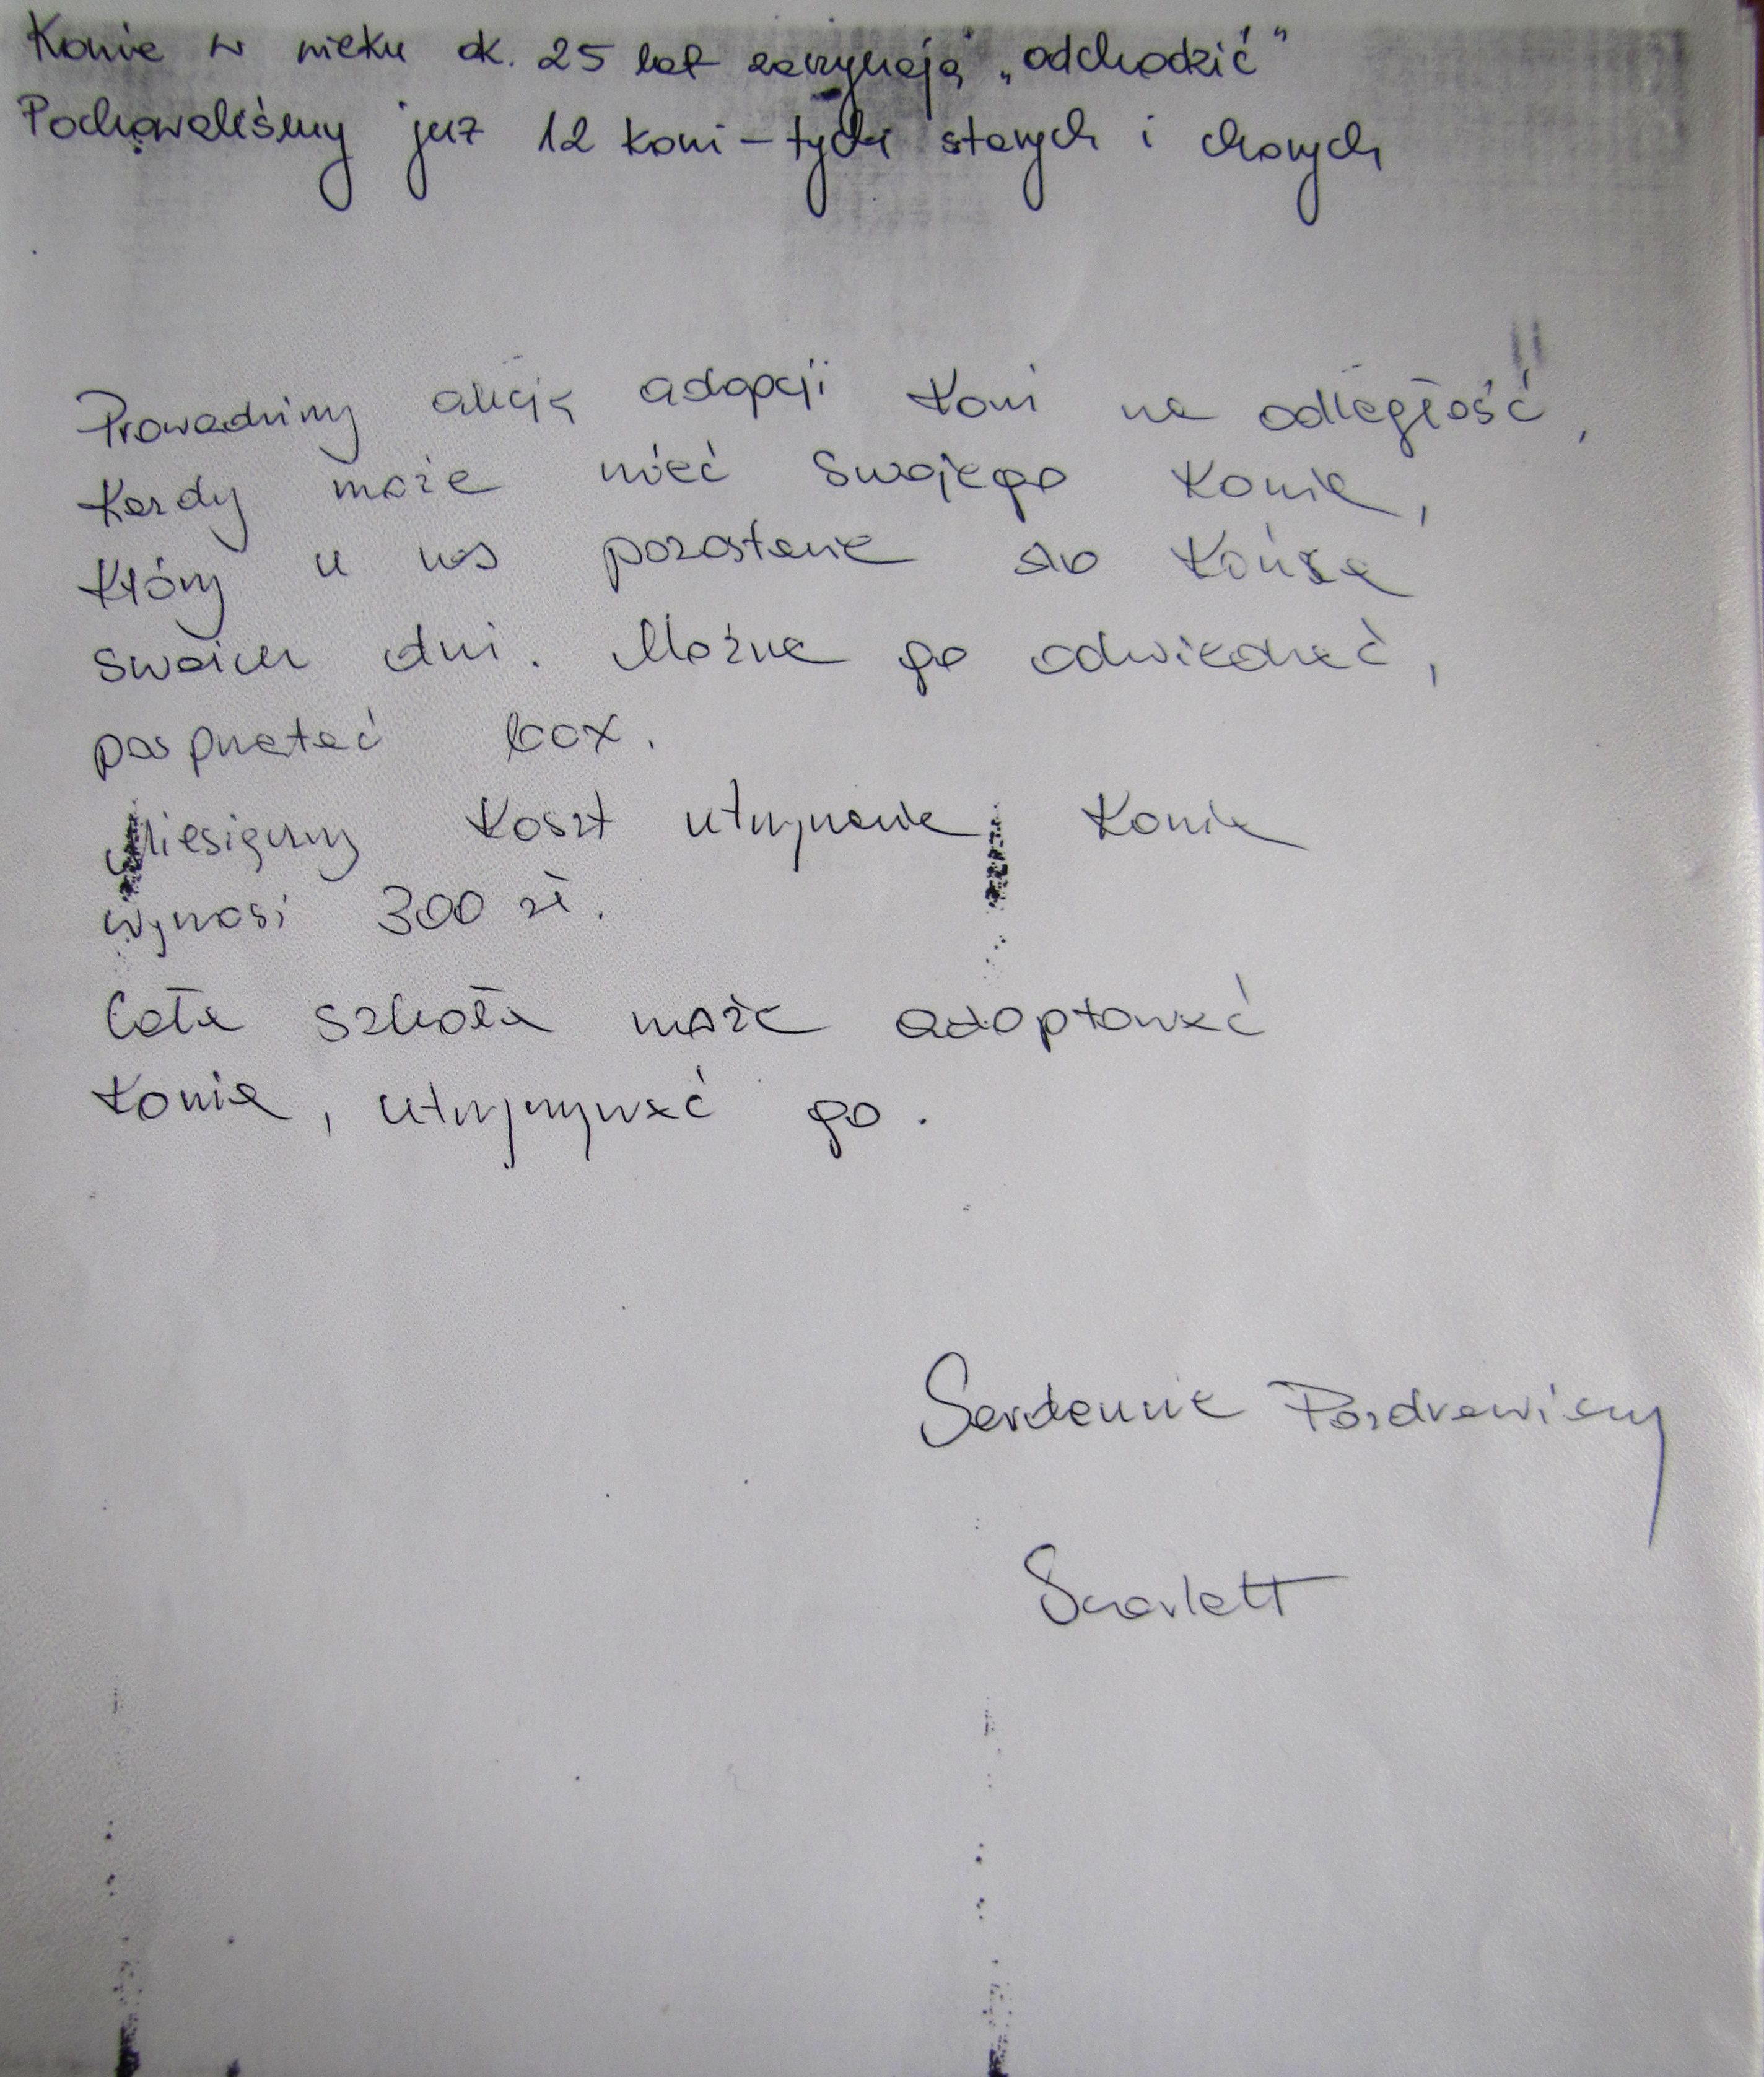 Konie w wieku ok. 25 lat zaczynają „odchodzić”
Pochowaliśmy już 12 koni – tych starych i chorych
Prowadzimy akcję adopcji koni na odległość,
Każdy może mieć swojego konia,
który u nas pozostanie do końca
swoich dni. Można go odwiedzać,
posprzątać box.
Miesięczny koszt utrzymania konia
wynosi 300 zł.
Cała szkoła może adoptować
konia, utrzymywać go.
Serdecznie Pozdrawiamy
Scarlett